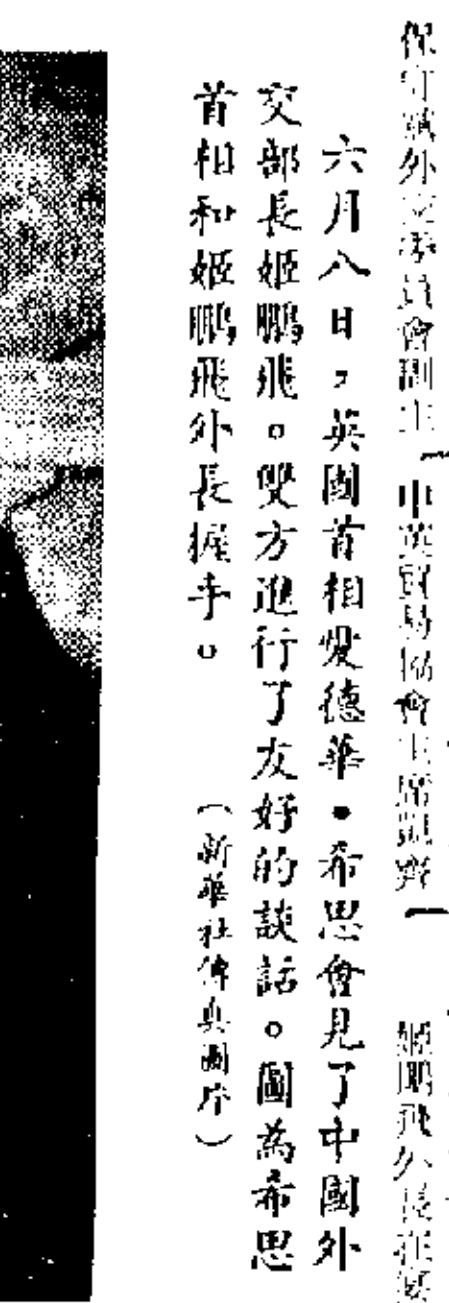 保守黨外交委員會副主
中英貿易協會主席凱
姬鵬飛外長在宴
六月八日，英國首相愛德華•希思會見了中國外
交部長姬鵬飛。雙方進行了友好的談話。圖為希思
首相和姬鵬飛外長握手。
（新華社傳真圖片）